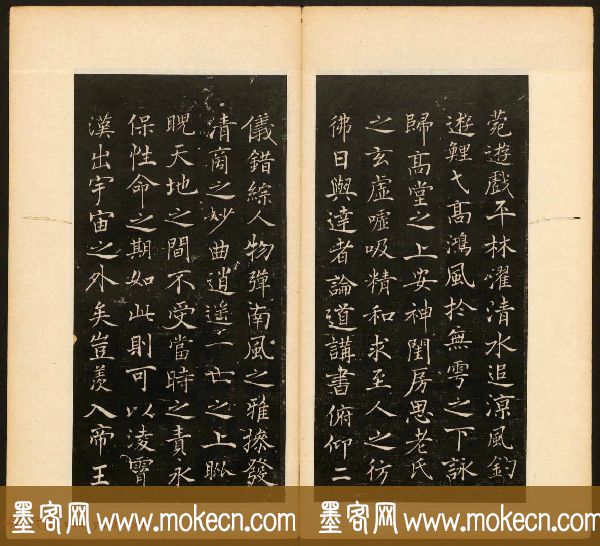 菀遊戲平林濯清水追涼風釣
遊鯉弋高鴻風於無雩之下詠
歸高堂之上安神閨房思老氏
之玄虛噓吸精和求至人之彷
彿日與達者論道講書俯仰二
儀錯綜人物彈南風之雅操發
清商之妙曲逍遙一世之上睥
睨天地之間不受當時之責永
保性命之期如此則可以淩霄
漢出宇宙之外矣豈羨入帝王
墨客网 www.mokecn.com 墨客网 www.mokecn.com